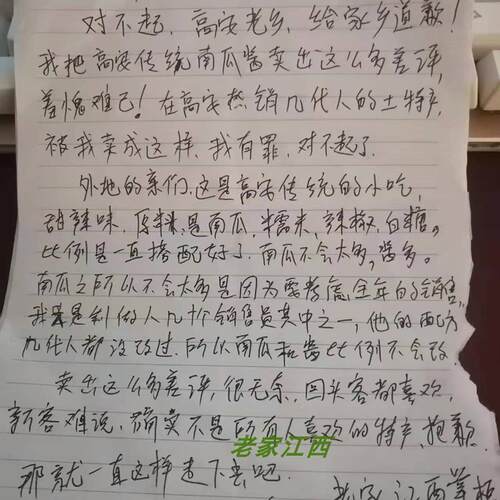 对不起，高安老乡，给家乡道歉！
我把高安传统南瓜酱卖出这么多差评，
羞愧难已！在高安热销几代人的土特产，
被我卖成这样，我有罪，对不起了．
外地的亲们．这是高安传统的小吃，
甜辣味，原料是南瓜．糯米，辣椒，白糖。
比例是一直搭配好了．南瓜不会太多，酱多。
南瓜之所以不会太多是因为要考虑全年的销售。
我是利的人几十个销售员其中之一，他的配方
几代人都没改过．所以南瓜和酱比例不会改．
卖出这么多差评，很无奈，回头客都喜欢，
新客难说，确实不是所有人喜欢的特产．抱歉．
那就一直这样走下去吧．
老家江西
老家江西